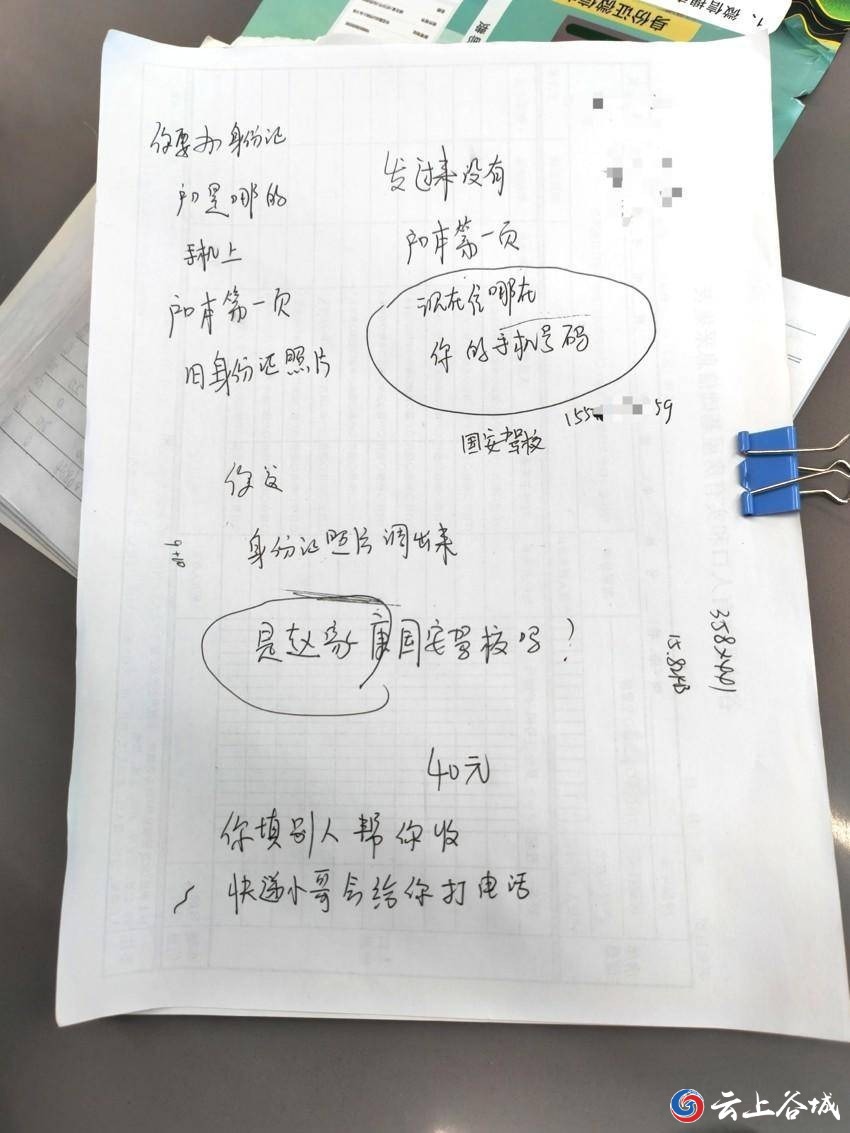 你要办身份证
户口是哪的
手机上
户口本第一页
旧身份证照片
发过来没有
户口本第一页
现在住哪在
你的手机号码
155 59
国安驾校
你这
身份证照片调出来
是赵家康国安驾校吗?
40元
你填别人帮你收
快递小哥会给你打电话
358×441
15.82KB
身份证微信
1、微信搜
云上谷城